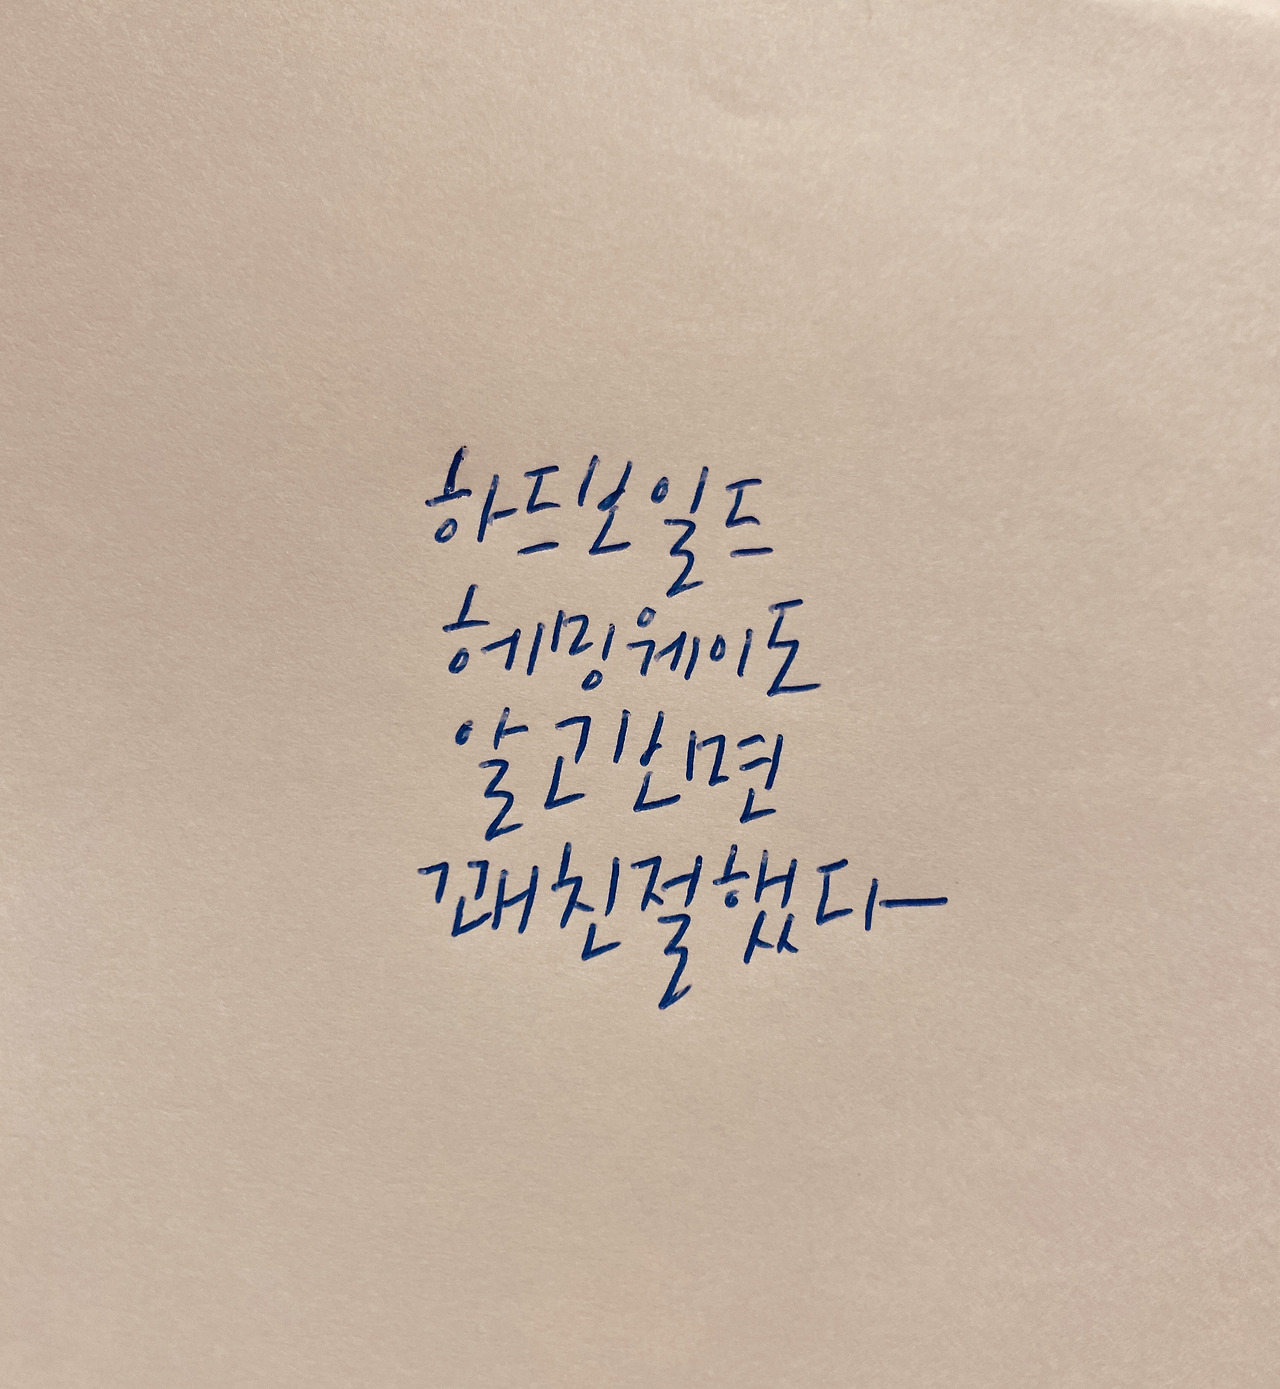 하드보일드
헤밍웨이도
알고보면
꽤친절했다